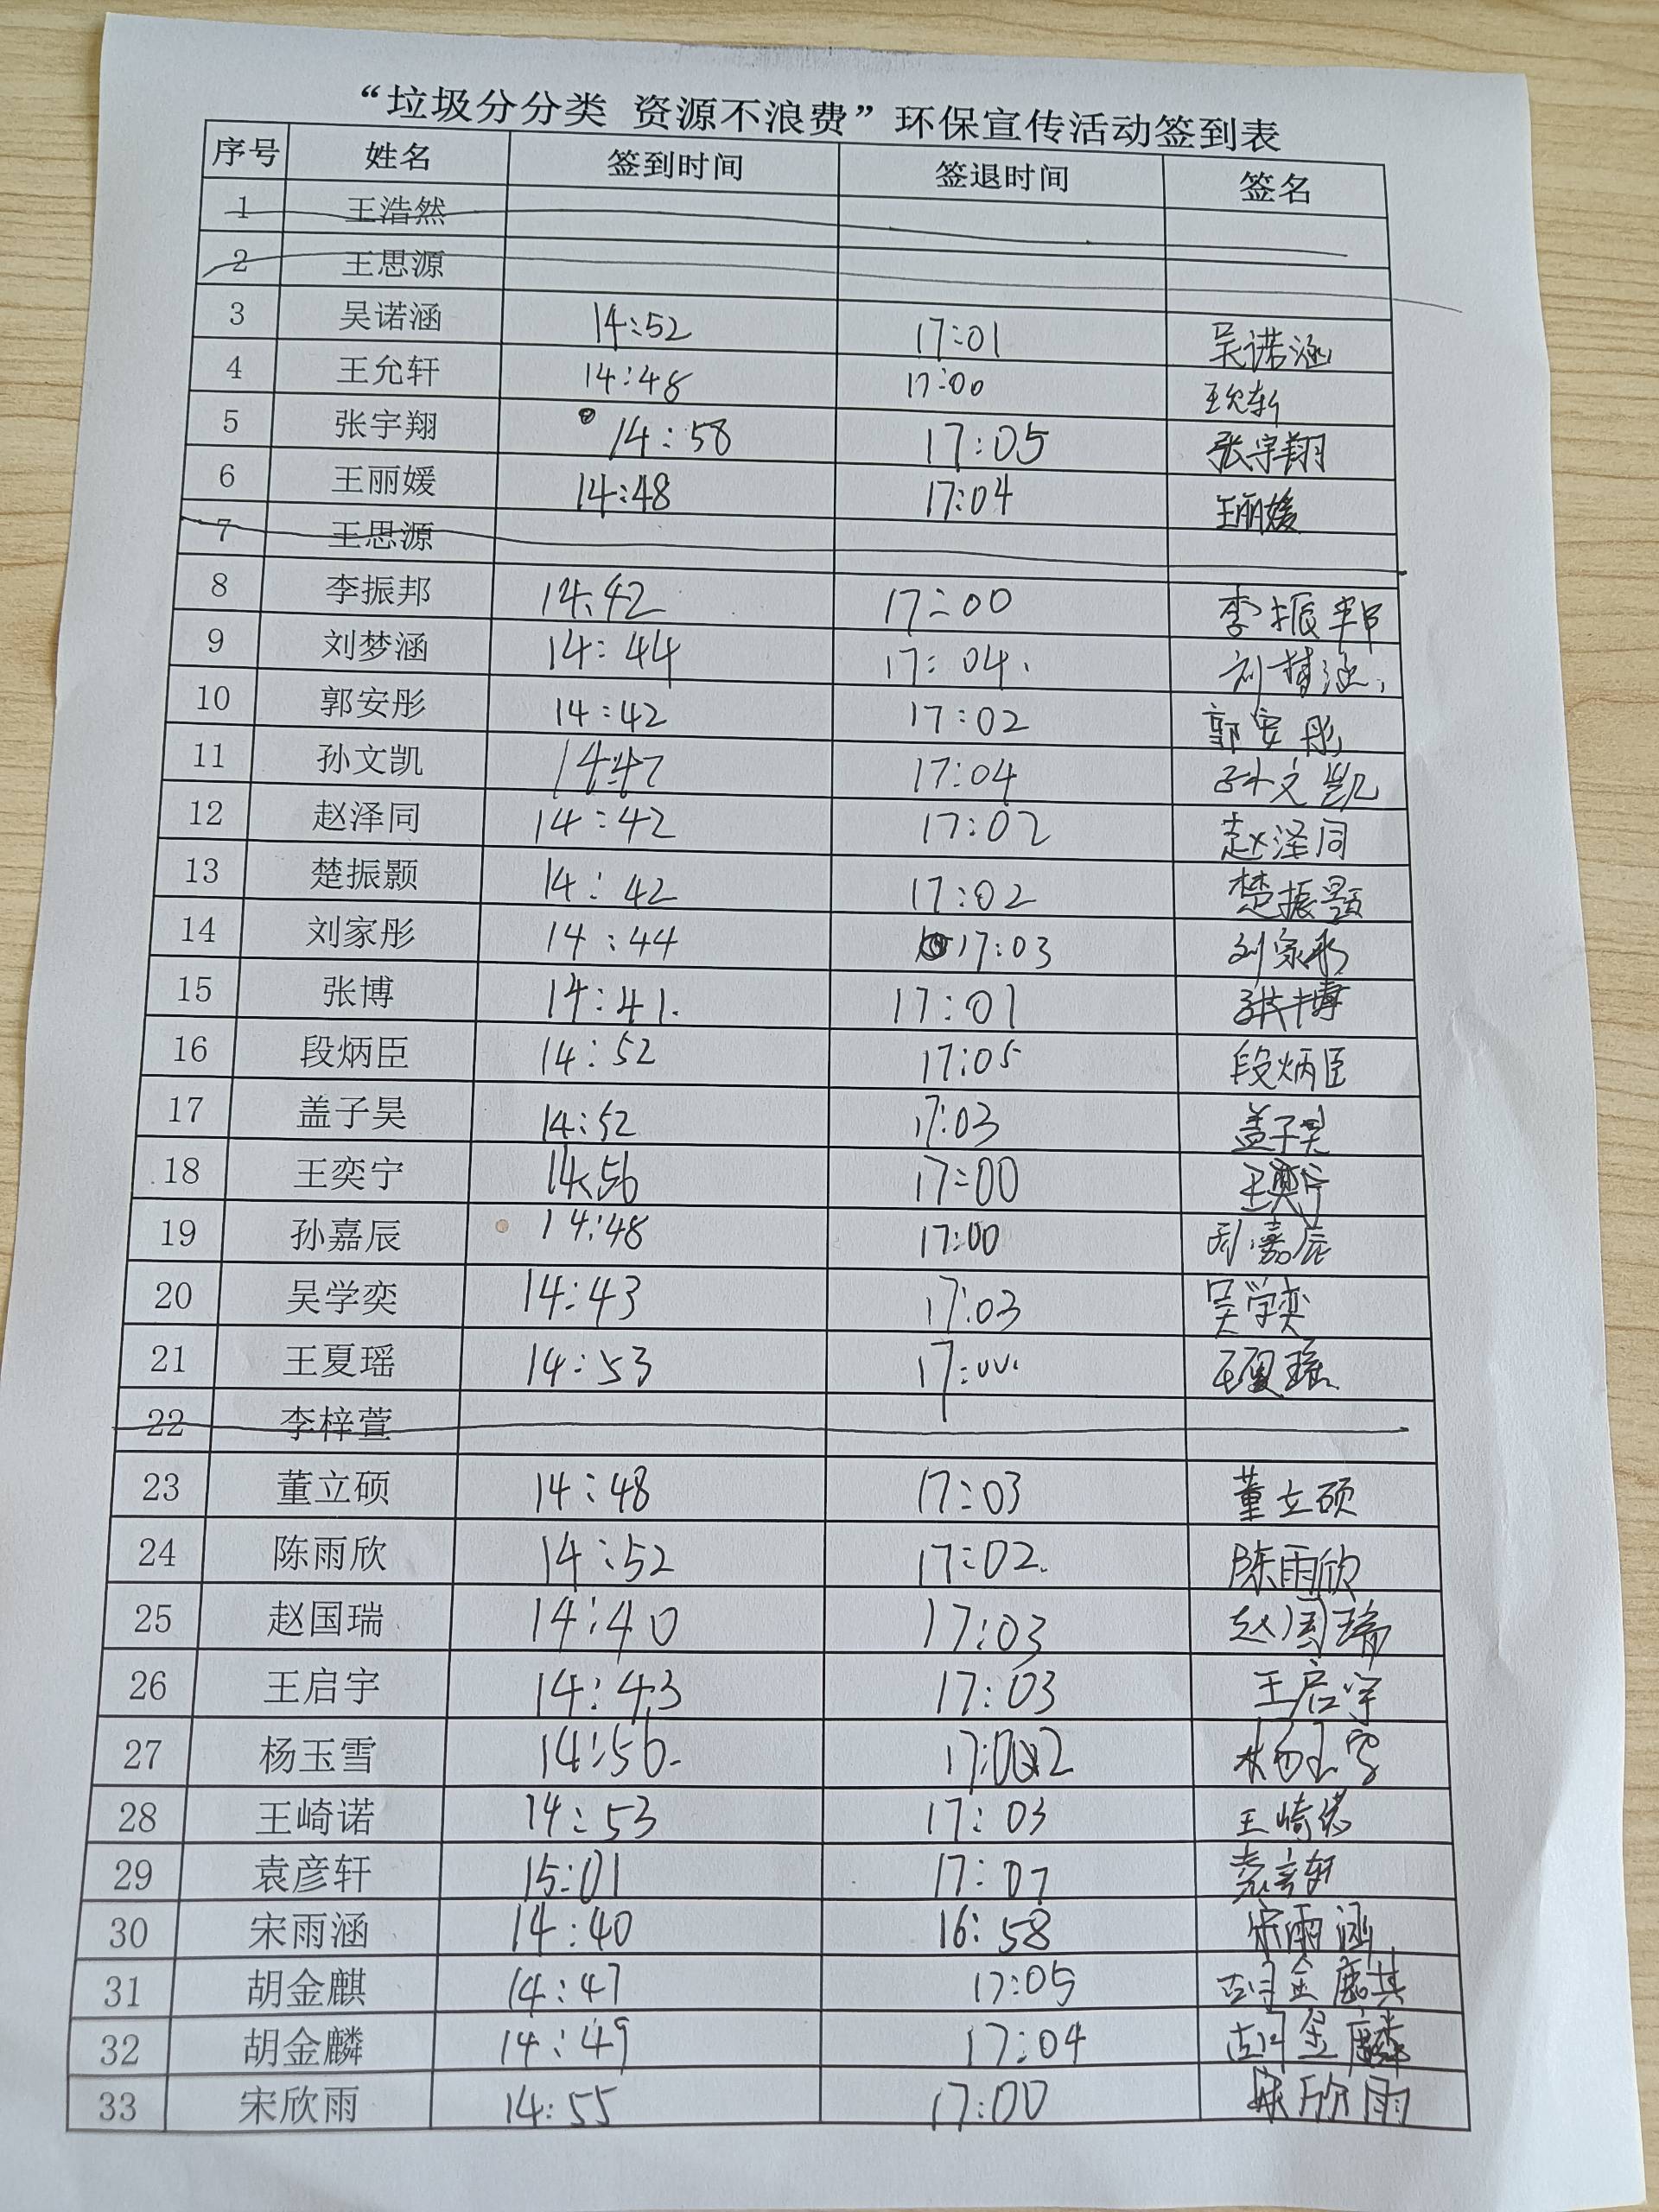 “垃圾分分类 资源不浪费”环保宣传活动签到表
序号 姓名 签到时间 签退时间 签名
1 王浩然
2 王思源
3 吴诺涵 14:52 17:01 吴诺涵
4 王允轩 14:48 17:00 王允轩
5 张宇翔 14:58 17:05 张宇翔
6 王丽媛 14:48 17:04 王丽媛
7 王思源
8 李振邦 14:42 17:00 李振邦
9 刘梦涵 14:44 17:04. 刘梦涵
10 郭安彤 14:42 17:02 郭安彤
11 孙文凯 14:47 17:04 孙文凯
12 赵泽同 14:42 17:02 赵泽同
13 楚振颢 14:42 17:02 楚振颢
14 刘家彤 14:44 17:03 刘家彤
15 张博 14:41. 17:01 张博
16 段炳臣 14:52 17:05 段炳臣
17 盖子昊 14:52 17:03 盖子昊
18 王奕宁 14:56 17:00 王奕宁
19 孙嘉辰 14:48 17:00 孙嘉辰
20 吴学奕 14:43 17:03 吴学奕
21 王夏瑶 14:53 王夏瑶
22 李梓萱
23 董立硕 14:48 17:03 董立硕
24 陈雨欣 14:52 17:02. 陈雨欣
25 赵国瑞 14:40 17:03 赵国瑞
26 王启宇 14:43 17:03 王启宇
27 杨玉雪 14:56. 17:02 杨玉雪
28 王崎诺 14:53 17:03 王崎诺
29 袁彦轩 15:01 17:07 袁彦轩
30 宋雨涵 14:40 16:58 宋雨涵
31 胡金麒 14:47 17:05 胡金麒
32 胡金麟 14:49 17:04 胡金麟
33 宋欣雨 14:55 17:00 宋欣雨